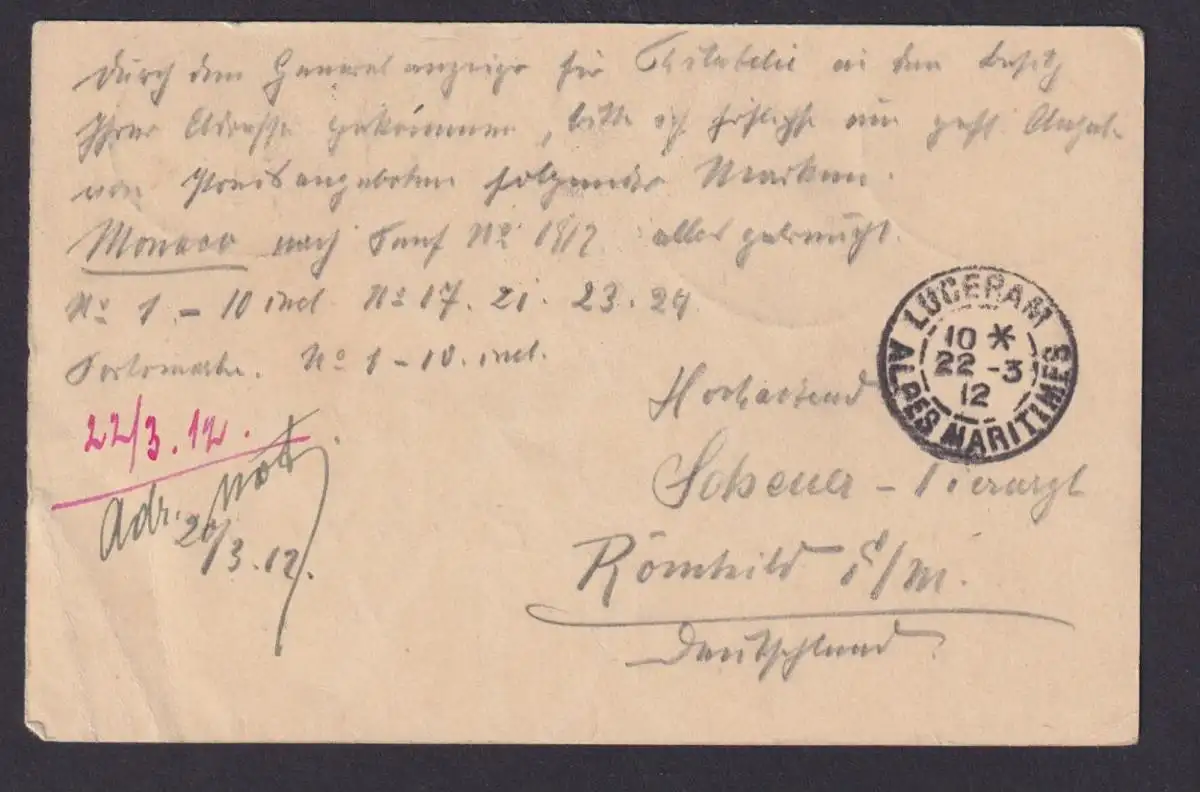 durch den Generalanzeiger für Philatelie in den Besitz
Ihrer Adresse gekommen, bitte ich höflichst um gefl. Angabe
von Preisangeboten folgender Marken.
Monaco nach Senf No 1912 alles gebraucht.
No 1 – 10 incl. No 17. 21. 23. 24
Portomarken. No 1 – 10. incl.
Hochachtend
Scheuer – Tierarzt
Römhild S/M.
Deutschland
22/3.12.
adr. not
20/3.12.
LUCERAM
10 *
22 -3
12
ALPES MARITIMES